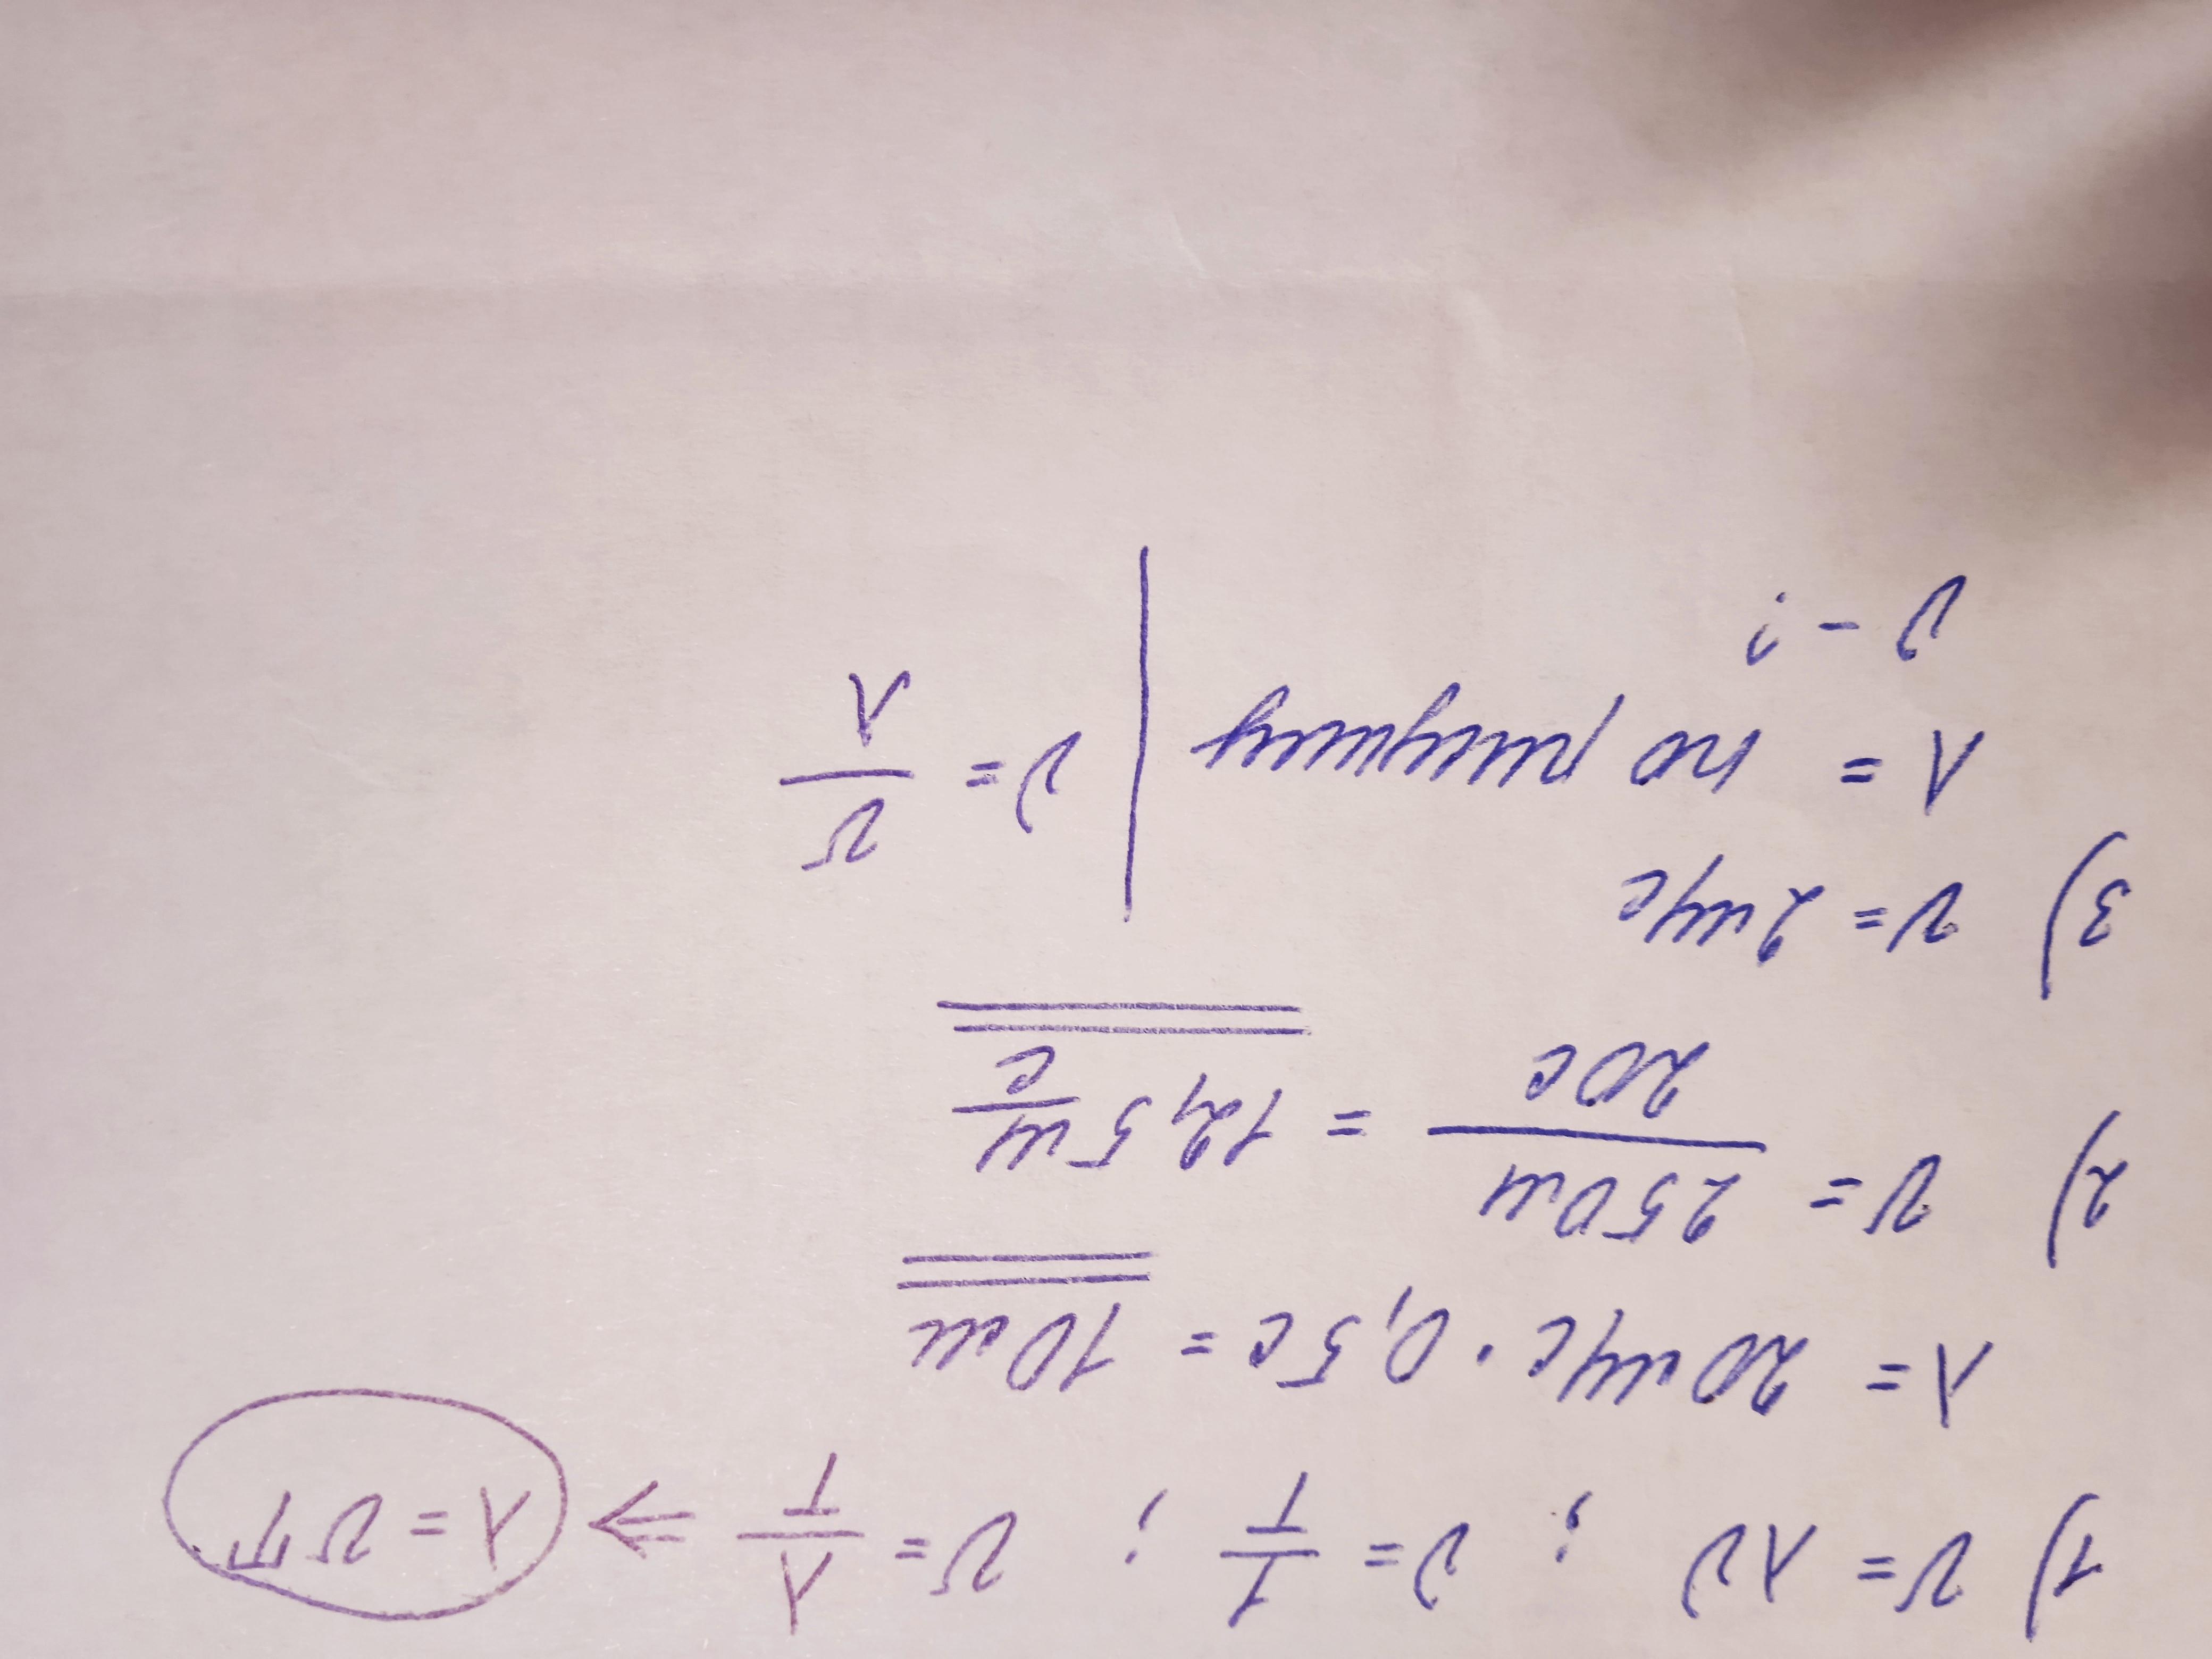 1) v = λν ; ν = 1/T ; v = λ/T ⇒ λ = vT
λ = 20м/с · 0,5с = 10м
2) v = 250м/20с = 12,5 м/с
3) v = 2м/с
λ = по рисунку | ν = v/λ
ν - ?